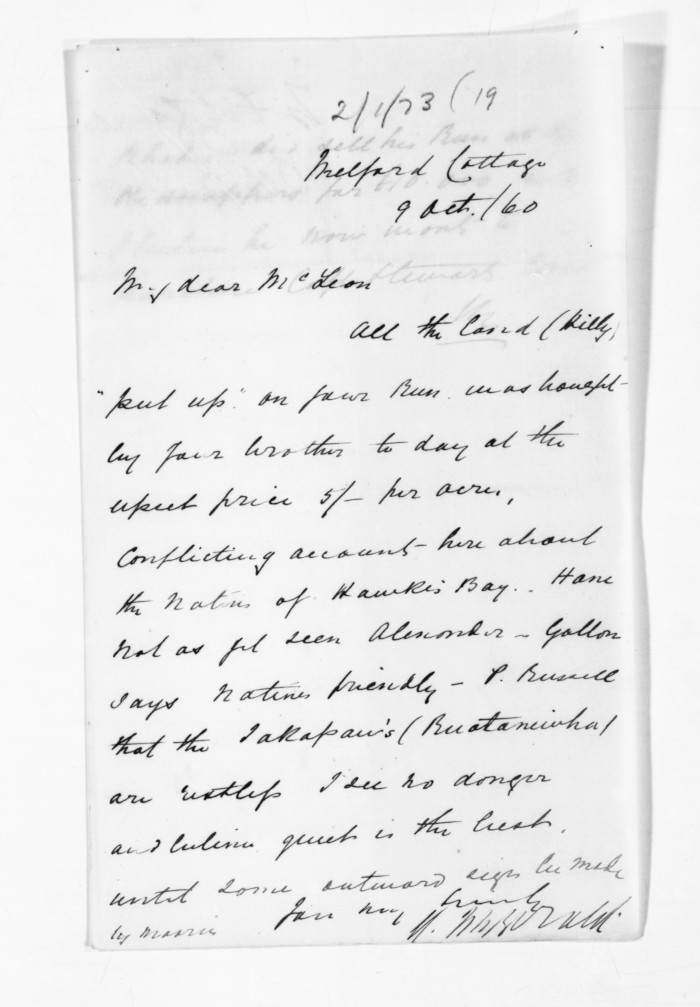 2/1/73 (19
Melford Cottage
9 Oct. /60
My dear McLean
All the Land (Hilly)
"put up" on your Run was bought
by your brother to day at the
upset price 5/- per acre,
Conflicting account here about
the Natives of Hawke's Bay. Have
not as yet seen Alexander - Gollan
says Natives friendly - P. Russell
that the Takapau's (Ruataniwha)
are restless I see no danger
and believe quiet is the best,
until some outward sign be made
by Maories
Yours very truly
FitzGerald